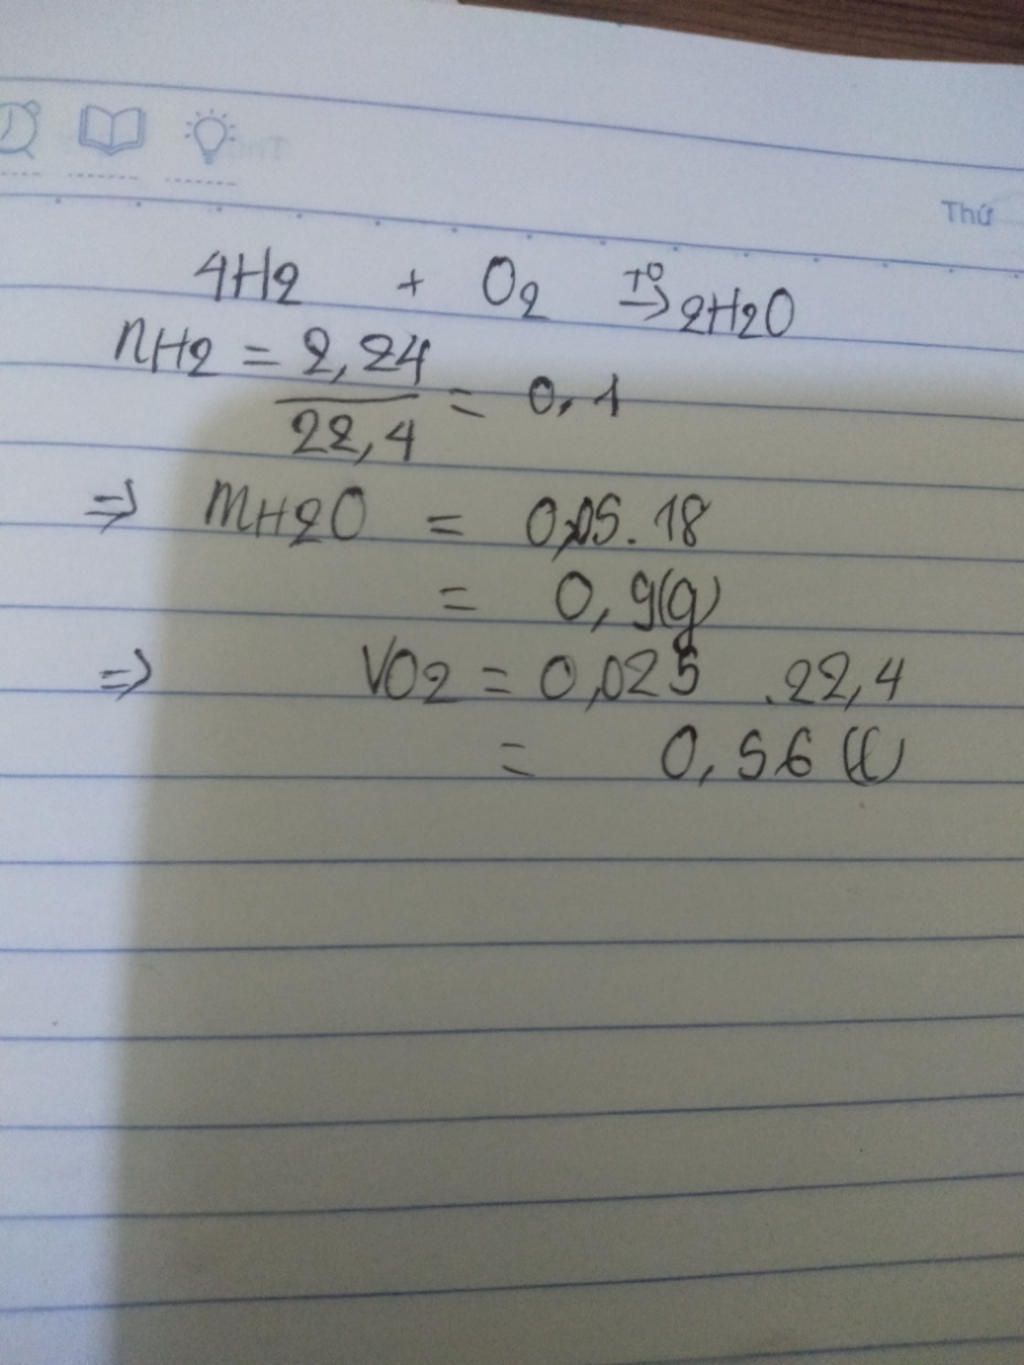 Thứ
4H2 + O2 t⁰→ 2H2O
nH2 = 2,24
22,4 = 0,1
⇒ mH2O = 0,05.18
= 0,9(g)
⇒ VO2 = 0,025 .22,4
= 0,56 (l)